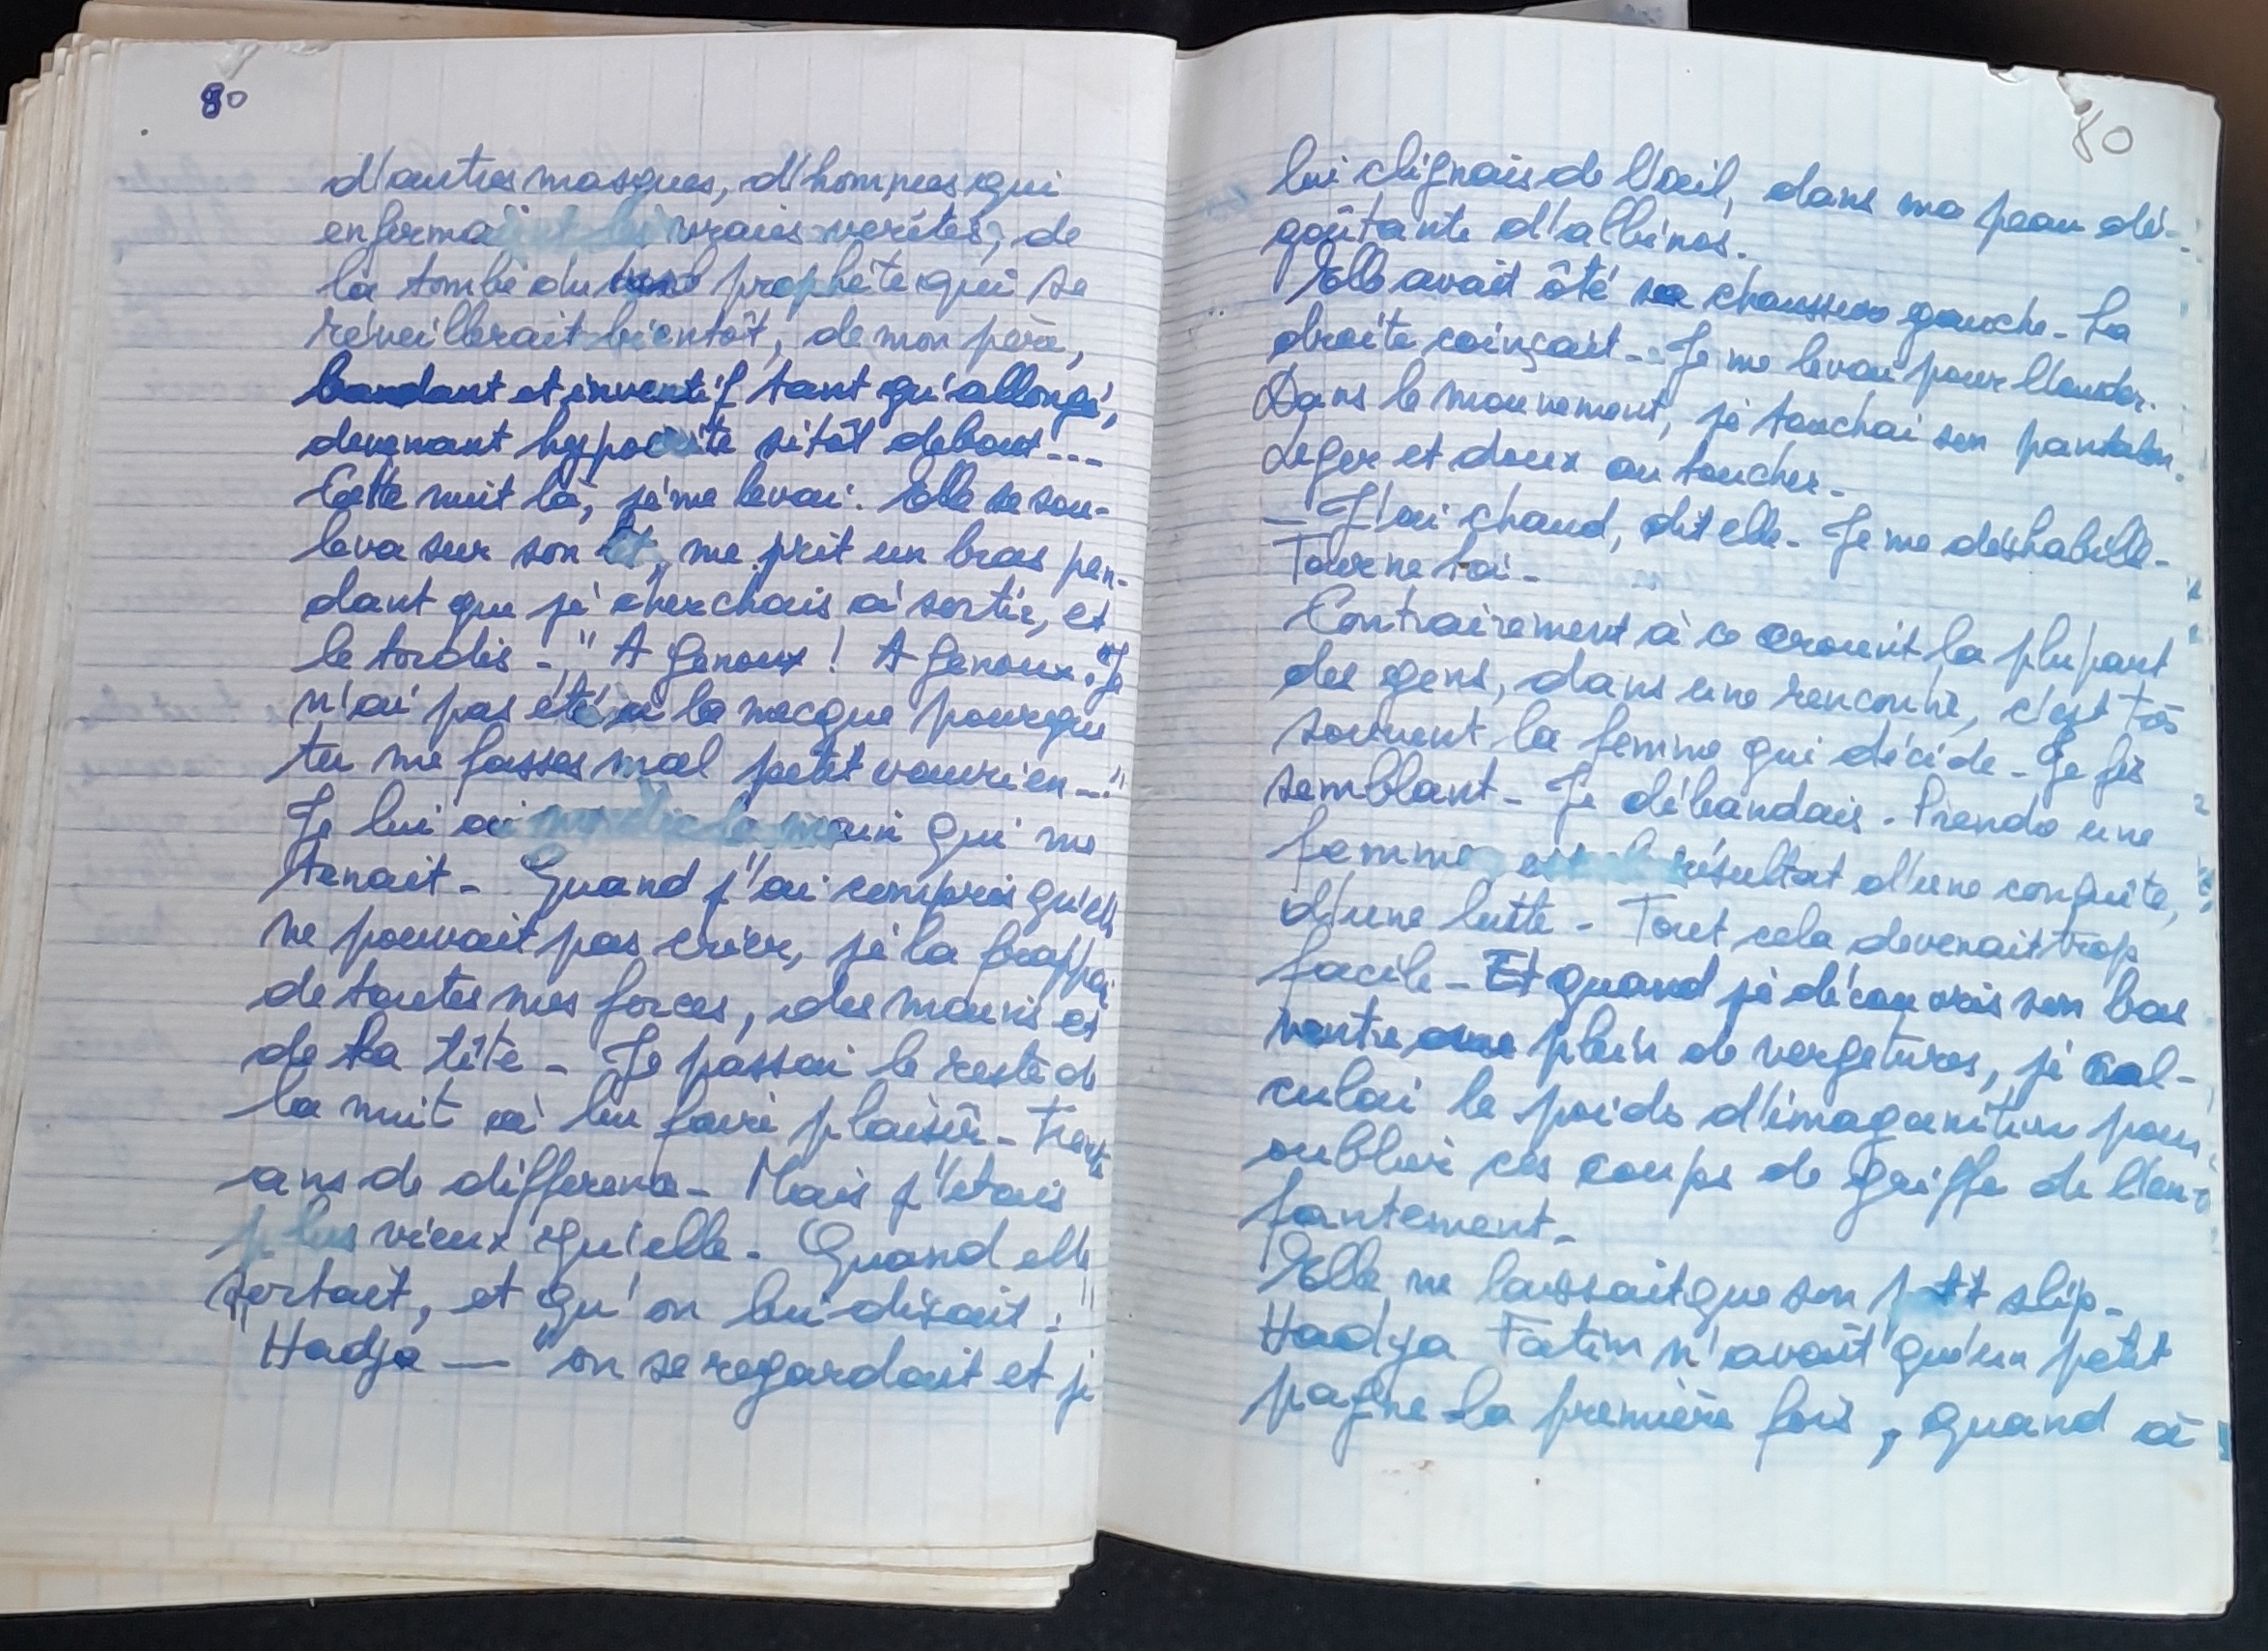 80
d'autres masques, d'hommes qui
enfermaient les vraies verités, de
la tombe du prophète qui se
réveillerait bientôt, de mon père,
bandant et inventif tant qu'allongé,
devenant hypocrite sitôt debout...
Cette nuit là, je me levai. Elle se sou-
leva sur son lit, me prit un bras pen-
dant que je cherchais à sortir, et
le tordis - "A genoux ! A genoux. "Je
n'ai pas été à la mecque pour que
tu me fasses mal petit vaurien -"
Je lui ai mordu la main qui me
tenait - Quand j'ai compris qu'elle
ne pouvait pas crier, je la frappai
de toutes mes forces, des mains et
de la tête - Je passai le reste de
la nuit à lui faire plaisir - Trente
ans de difference - Mais j'étais
plus vieux qu'elle - Quand elle
sortait, et qu'on lui disait :
"Hadja — " on se regardait et je
80
lui clignais de l'œil, dans ma peau dé-
goûtante d'albinos.
Elle avait ôté sa chaussure gauche - La
droite coinçait - Je me levai pour l'aider.
Dans le mouvement, je touchai son pantalon.
Leger et doux au toucher -
- J'ai chaud, dit elle - Je me déshabille -
Tourne toi -
Contrairement à ce croient la plupart
des gens, dans une rencontre, c'est très
souvent la femme qui décide - Je fis
semblant - Je débandais - Prendre une
femme est le résultat d'une conquête,
d'une lutte - Tout cela devenait trop
facile - Et quand je découvris son bas
ventre plein de vergetures, je cal-
culai le poids d'imagination pour
oublier ces coups de griffe de l'en-
fantement -
Elle ne laissait que son petit slip -
Hadja Fatim n'avait qu'un petit
pagne la première fois, quand à